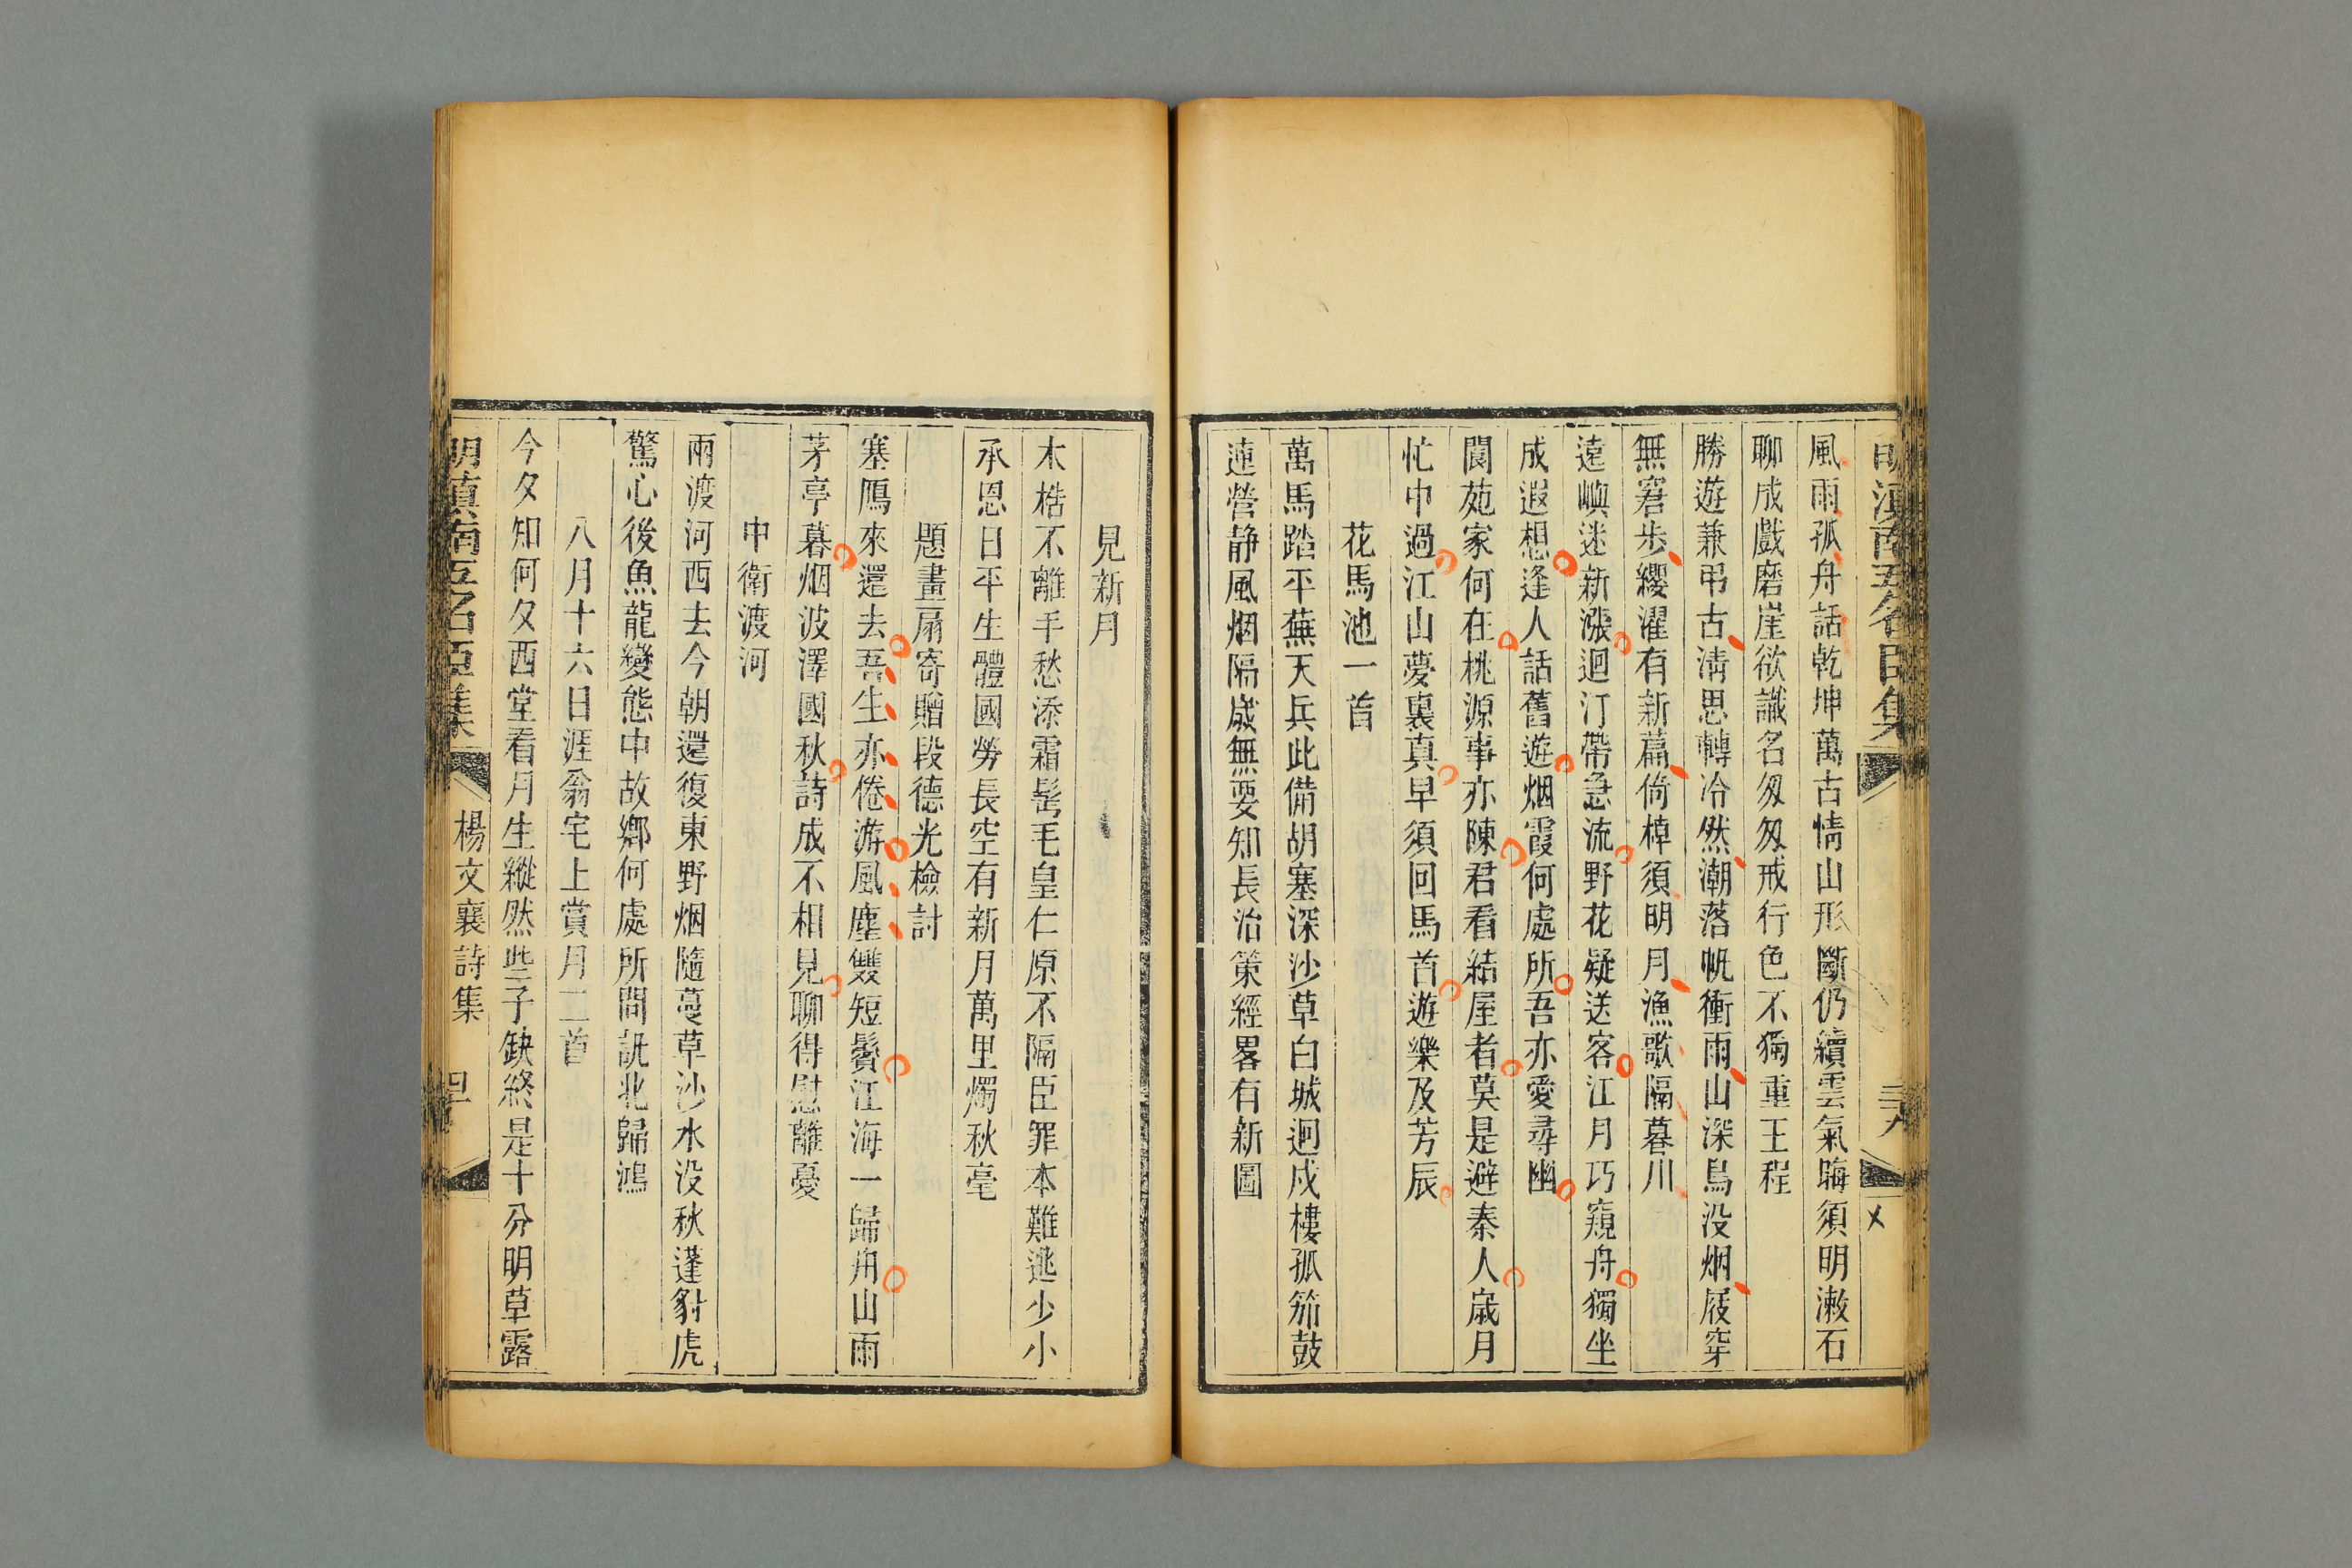 風雨孤舟話乾坤萬古情山形斷仍續雲氣晦須明漱石
聊成戲磨崖欲識名匆匆戒行色不獨重王程
勝遊兼弔古清思轉冷然潮落帆衝雨山深鳥没烟屐穿
無窘步纓濯有新篇倚棹須明月漁歌隔暮川
遠嶼迷新漲迴汀帶急流野花疑送客江月巧窺舟獨坐
成遐想逢人話舊遊烟霞何處所吾亦愛尋幽
閬苑家何在桃源事亦陳君看結屋者莫是避秦人歲月
忙中過江山夢裏真早須回馬首遊樂及芳辰
花馬池一首
萬馬踏平蕪天兵此備胡塞深沙草白城迥戍樓孤笳鼓
連營静風烟隔歲無要知長治策經畧有新圖
見新月
木梏不離手愁添霜髩毛皇仁原不隔臣罪本難逃少小
承恩日平生體國勞長空有新月萬里燭秋毫
題畫扇寄贈段德光檢討
塞鴈來還去吾生亦倦游風塵雙短鬢江海一歸舟山雨
茅亭暮烟波澤國秋詩成不相見聊得慰離憂
中衛渡河
兩渡河西去今朝還復東野烟隨蔓草沙水没秋蓬豺虎
驚心後魚龍變態中故鄉何處所問訊北歸鴻
八月十六日涯翁宅上賞月二首
今夕知何夕西堂看月生縱然些子缺終是十分明草露
明滇南五名臣集 楊文襄詩集